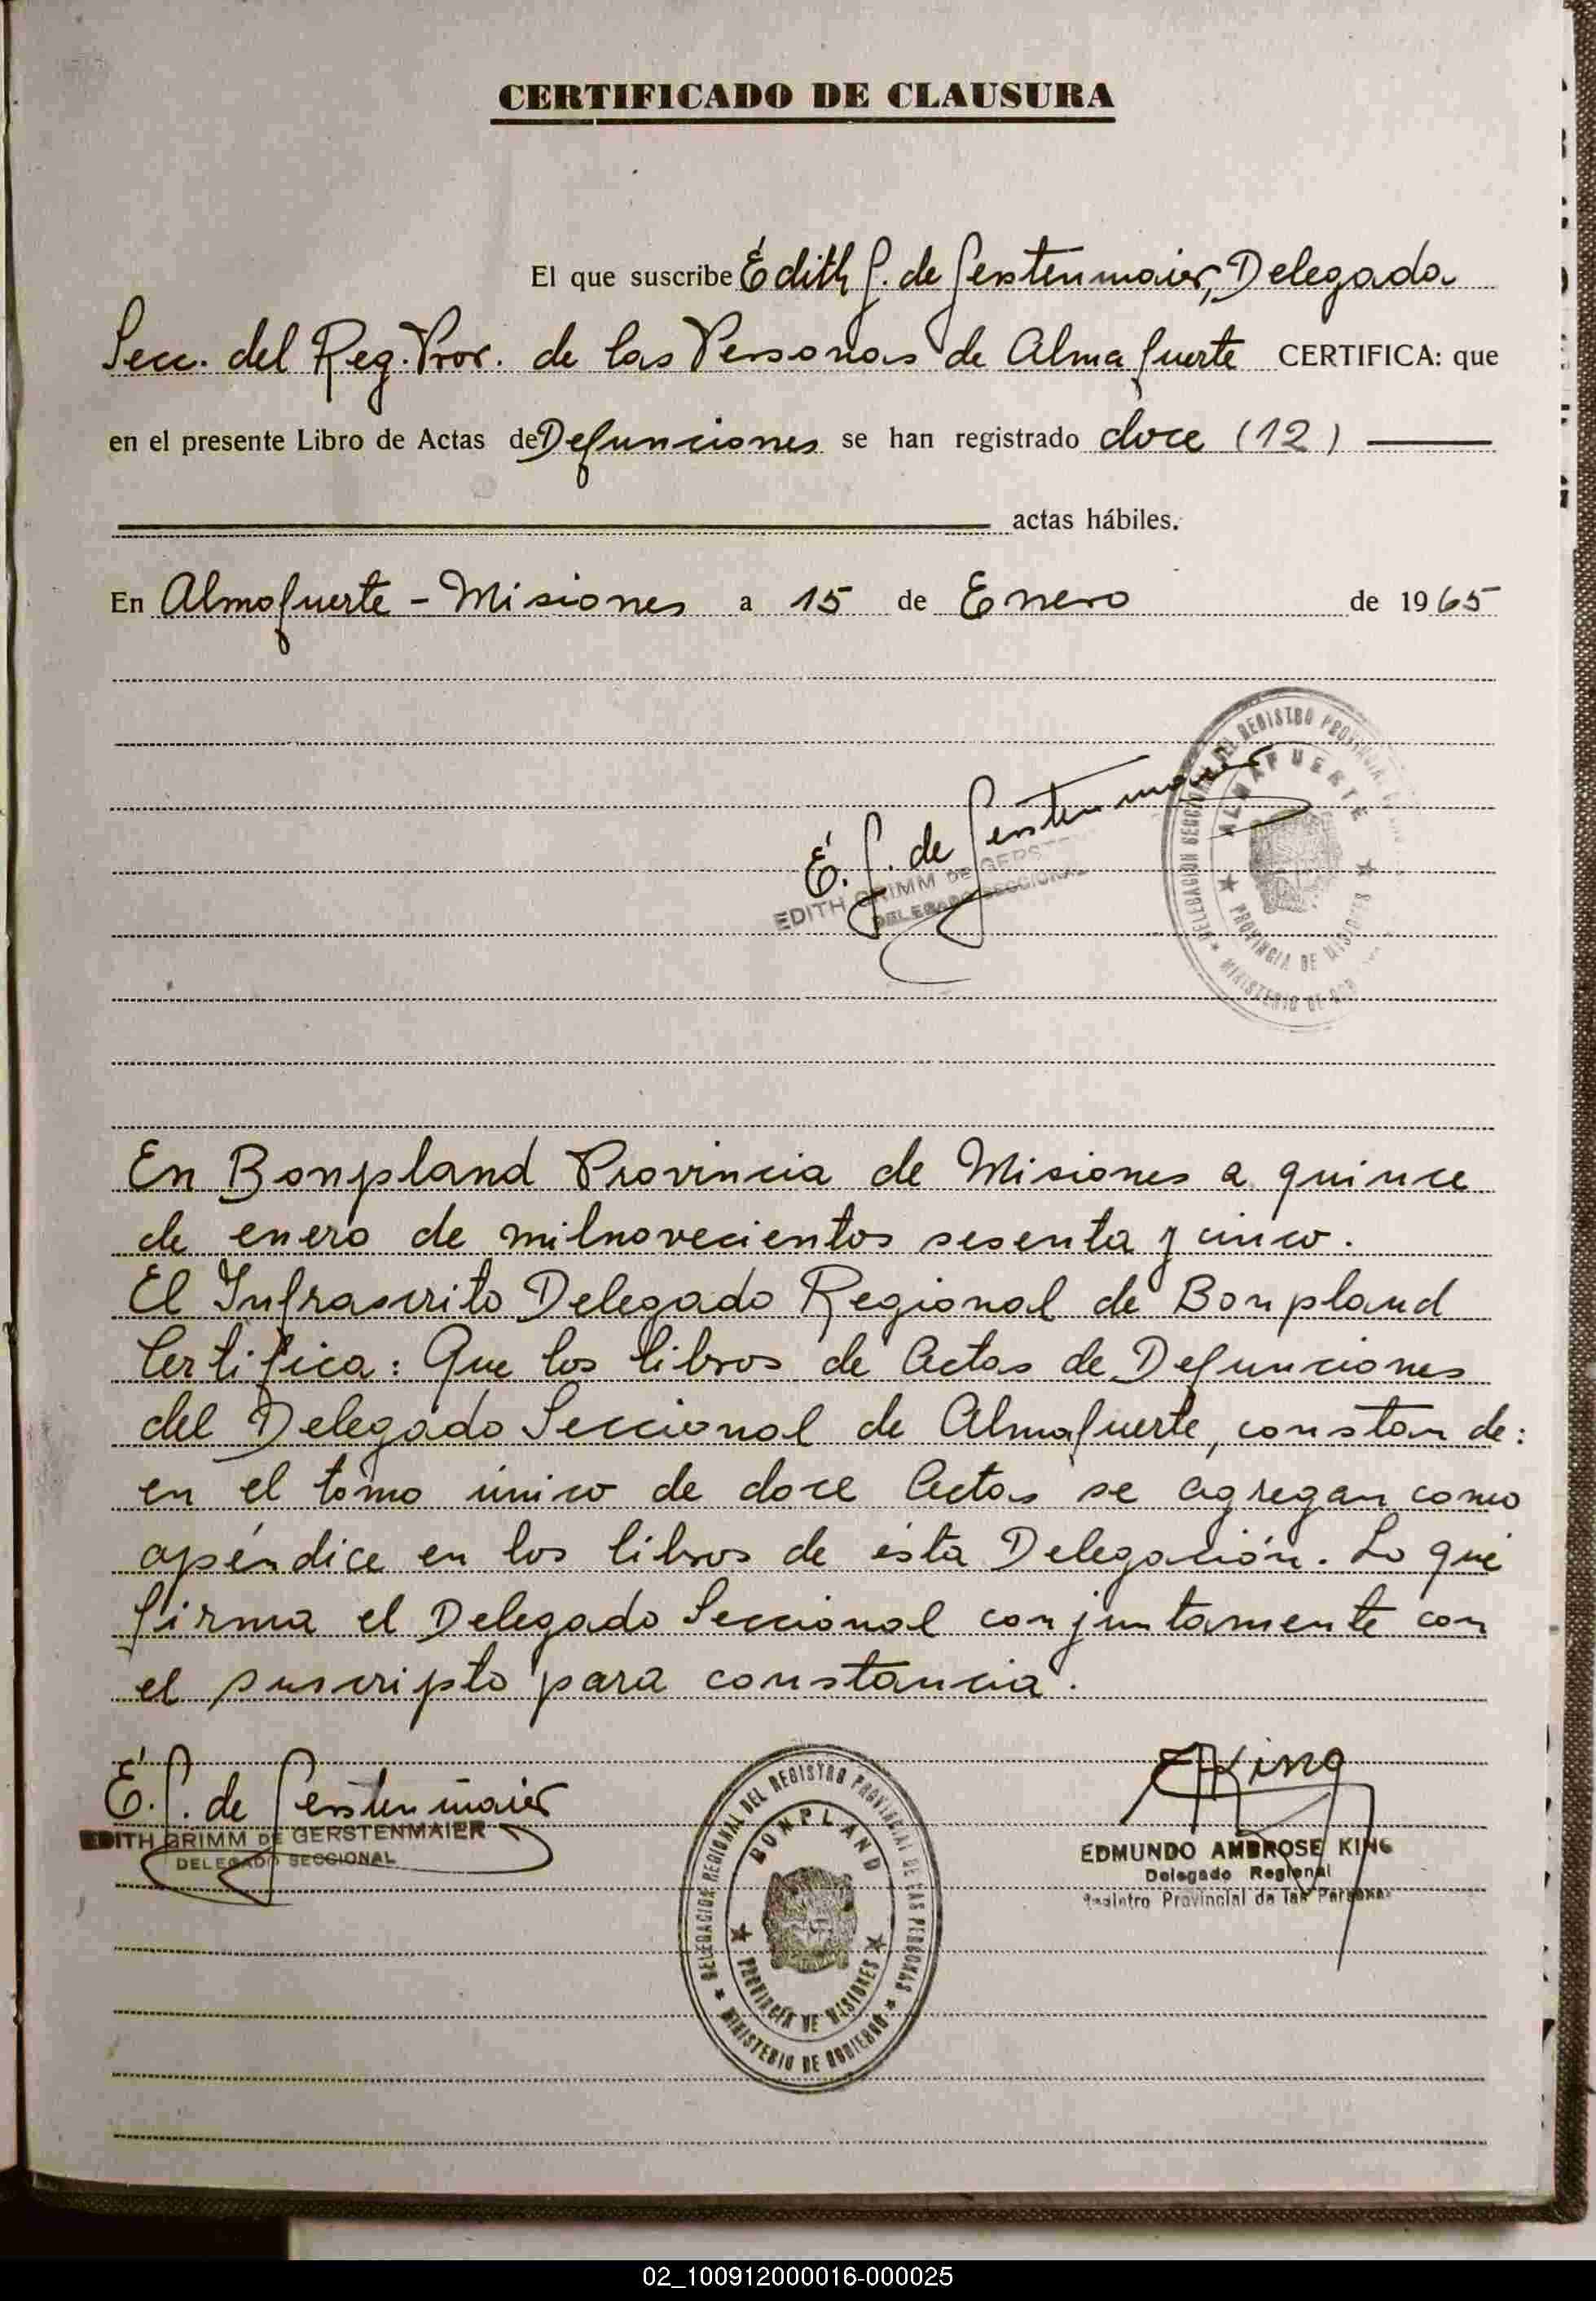 CERTIFICADO DE CLAUSURA
El que suscribe Edith G. de Gerstenmaier, Delegada
Secc. del Reg. Prov. de las Personas de Almafuerte CERTIFICA: que
en el presente Libro de Actas de Defunciones se han registrado doce (12)
actas hábiles.
En Almafuerte - Misiones a 15 de Enero de 1965
E. G. de Gerstenmaier
EDITH GRIMM DE GERST
DELEGADO SECCIONAL
DELEGACION SECCIONAL DEL REGISTRO PROVINCIAL
ALMAFUERTE
PROVINCIA DE MISIONES
MINISTERIO DE GOB
En Bonpland Provincia de Misiones a quince
de enero de milnovecientos sesenta y cinco.
El Infrascrito Delegado Regional de Bonpland
Certifica: Que los libros de Actas de Defunciones
del Delegado Seccional de Almafuerte, constan de:
en el tomo único de doce Actas se agregan como
apéndice en los libros de ésta Delegación. Lo que
firma el Delegado Seccional conjuntamente con
el suscripto para constancia.
E. G. de Gerstenmaier
EDITH GRIMM DE GERSTENMAIER
DELEGADO SECCIONAL
DELEGACION REGIONAL DEL REGISTRO PROVINCIAL DE LAS PERSONAS
BONPLAND
PROVINCIA DE MISIONES
MINISTERIO DE GOBIERNO
EAKing
EDMUNDO AMBROSE KING
Delegado Regional
Registro Provincial de las Personas
02_100912000016-000025